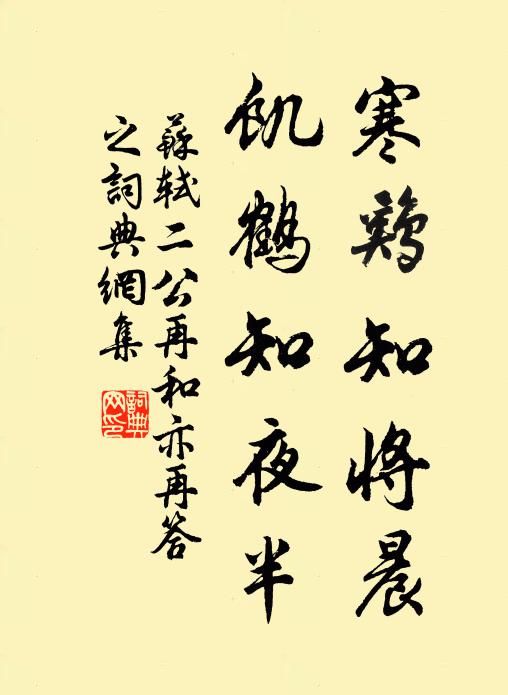 寒鷄知將晨
飢鶴知夜半
蘇軾二公再和亦再答
之詞典網集
詞典网印